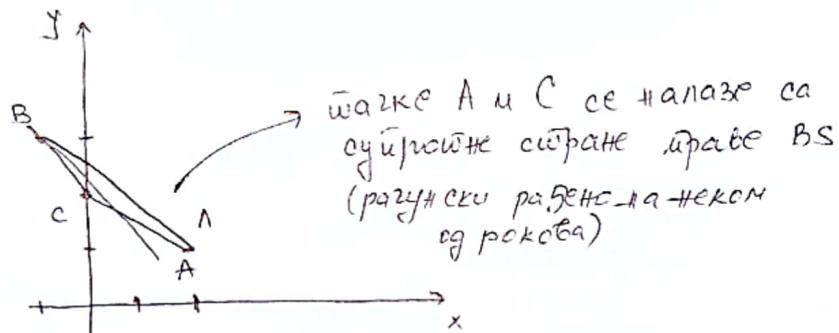 y
B
тачке A и C се налазе са
супротне стране праве BS
C
(рачунски рађено на неком
A
од рокова)
A
x